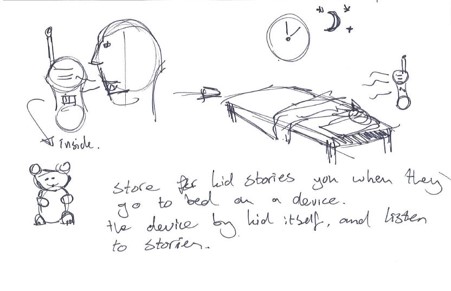 inside.
store for kid stories you when they
go to bed on a device.
the device by kid itself, and listen
to stories.